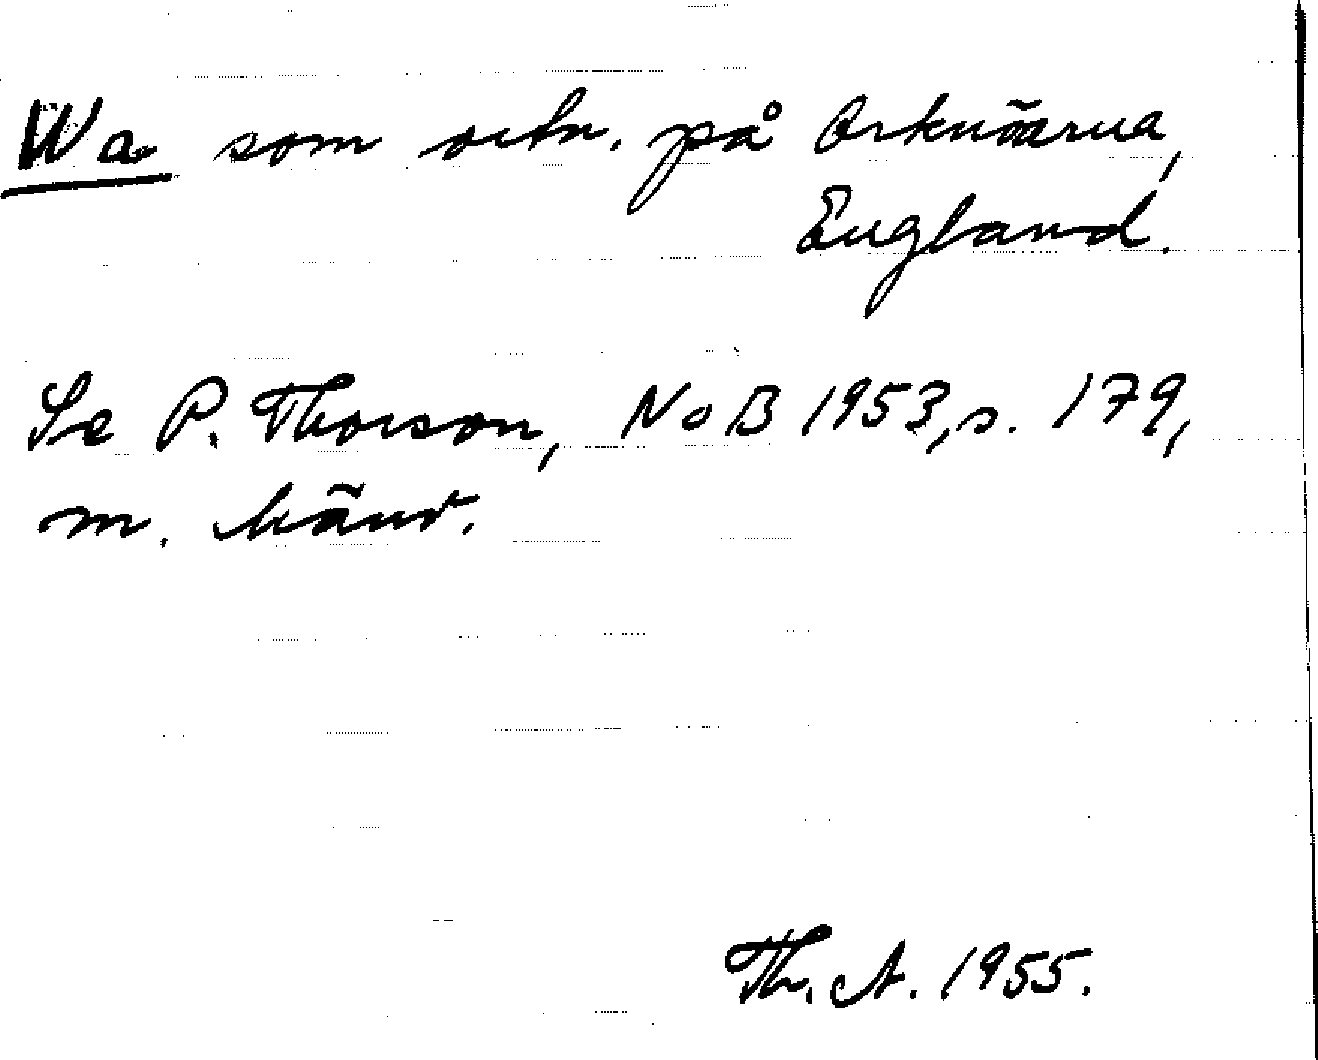 Wa som ortn. på Orknöarna,
England.
Se P. Thorson, NoB 1953, s. 179,
m. hänv.
Th. A. 1955.